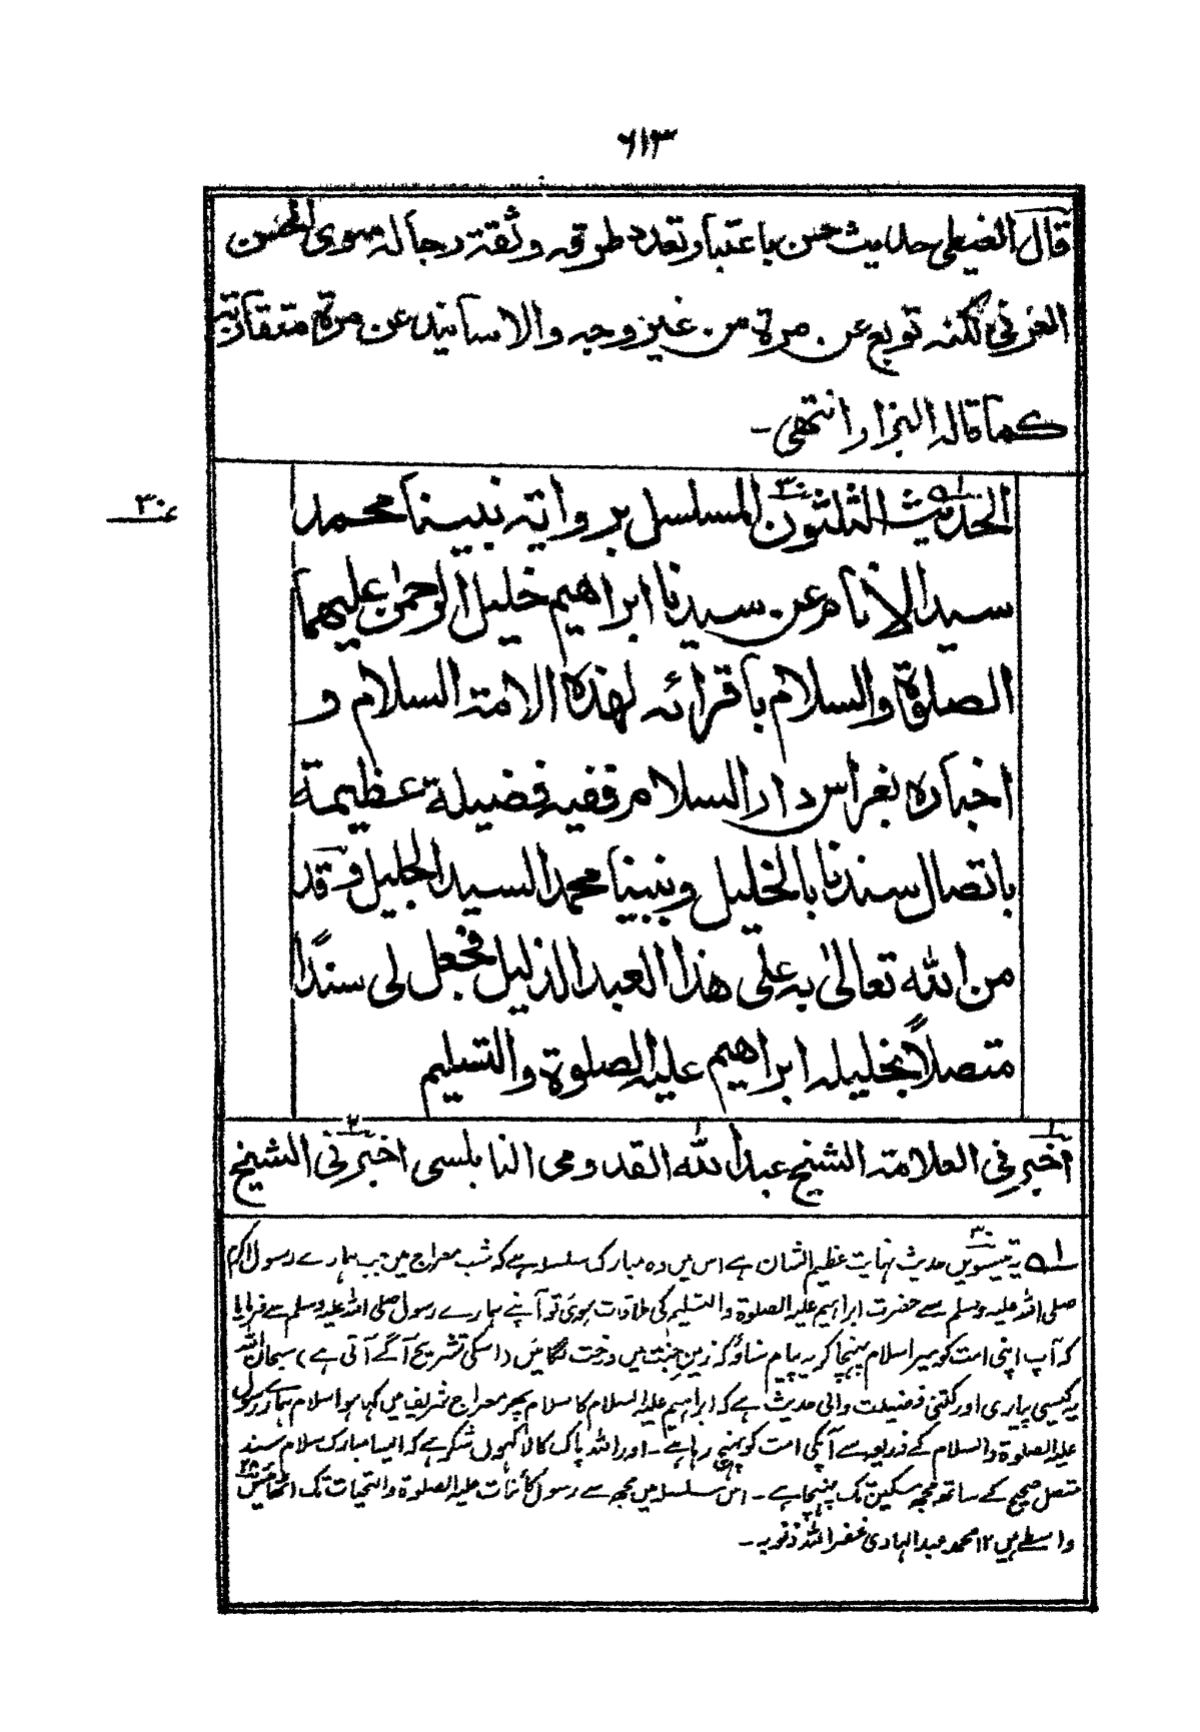 ۶۱۳
قال الغيطى حديث حسن باعتبار تعدد طرقه وثقة رجاله سوى الحسن
العرفى لكنه توبع عن مرة من غير وجه والاسانيد عن مرة متقاربة
كما قاله البزار انتهى ـ
الحديث الثلثون المسلسل بروايته نبينا محمد
ع۳۰
سيد الانام عن سيدنا ابراهيم خليل الرحمن عليهما
الصلوة والسلام باقرائه لهذه الامة السلام و
اخباره بغراس دار السلام ففيه فضيلة عظيمة
باتصال سندنا بالخليل ونبينا محمد السيد الجليل وقد
من الله تعالىٰ به على هذا العبد الذليل فجعل لى سندًا
متصلاً بخليله ابراهيم عليه الصلوة والتسليم
اخبرنى العلامة الشيخ عبد الله القدومى النابلسى اخبرنى الشيخ
۱ه یہ تیسویں حدیث نہایت عظیم الشان ہے اس میں وہ مبارک سلسلہ ہے کہ شب معراج میں جب ہمارے رسول اکرم
صلی اللہ علیہ وسلم سے حضرت ابراہیم علیہ الصلوۃ والتسلیم کی ملاقات ہوئی تو آپ نے ہمارے رسول صلی اللہ علیہ وسلم سے فرمایا
کہ آپ اپنی امت کو میرا سلام پہنچا کر یہ پیام سناؤ کہ زمین جنت میں درخت لگائیں (اسکی تشریح آگے آتی ہے) سبحان اللہ
یہ کیسی پیاری اور کتنی فضیلت والی حدیث ہے کہ ابراہیم علیہ السلام کا سلام پھر معراج شریف میں کہا ہوا سلام ہمارے رسول
علیہ الصلوۃ والسلام کے ذریعہ سے آپکی امت کو پہنچ رہا ہے ـ اور اللہ پاک کا لاکھوں شکر ہے کہ ایسا مبارک سلام سند
متصل صحیح کے ساتھ مجھ مسکین تک پہنچا ہے ـ اس سلسلہ میں مجھ سے رسول کائنات علیہ الصلوۃ والتحیات تک اٹھائیس ۲۸
واسطے ہیں ۱۲ محمد عبد الہادی غفر اللہ ذنوبہ ـ